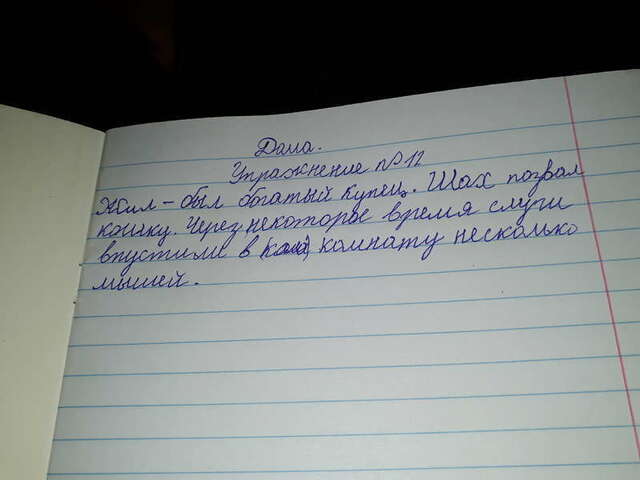 Дата.
Упражнение №12
Жил-был богатый купец. Шах позвал
кошку. Через некоторое время слуги
впустили в (ком) комнату несколько
мышей.